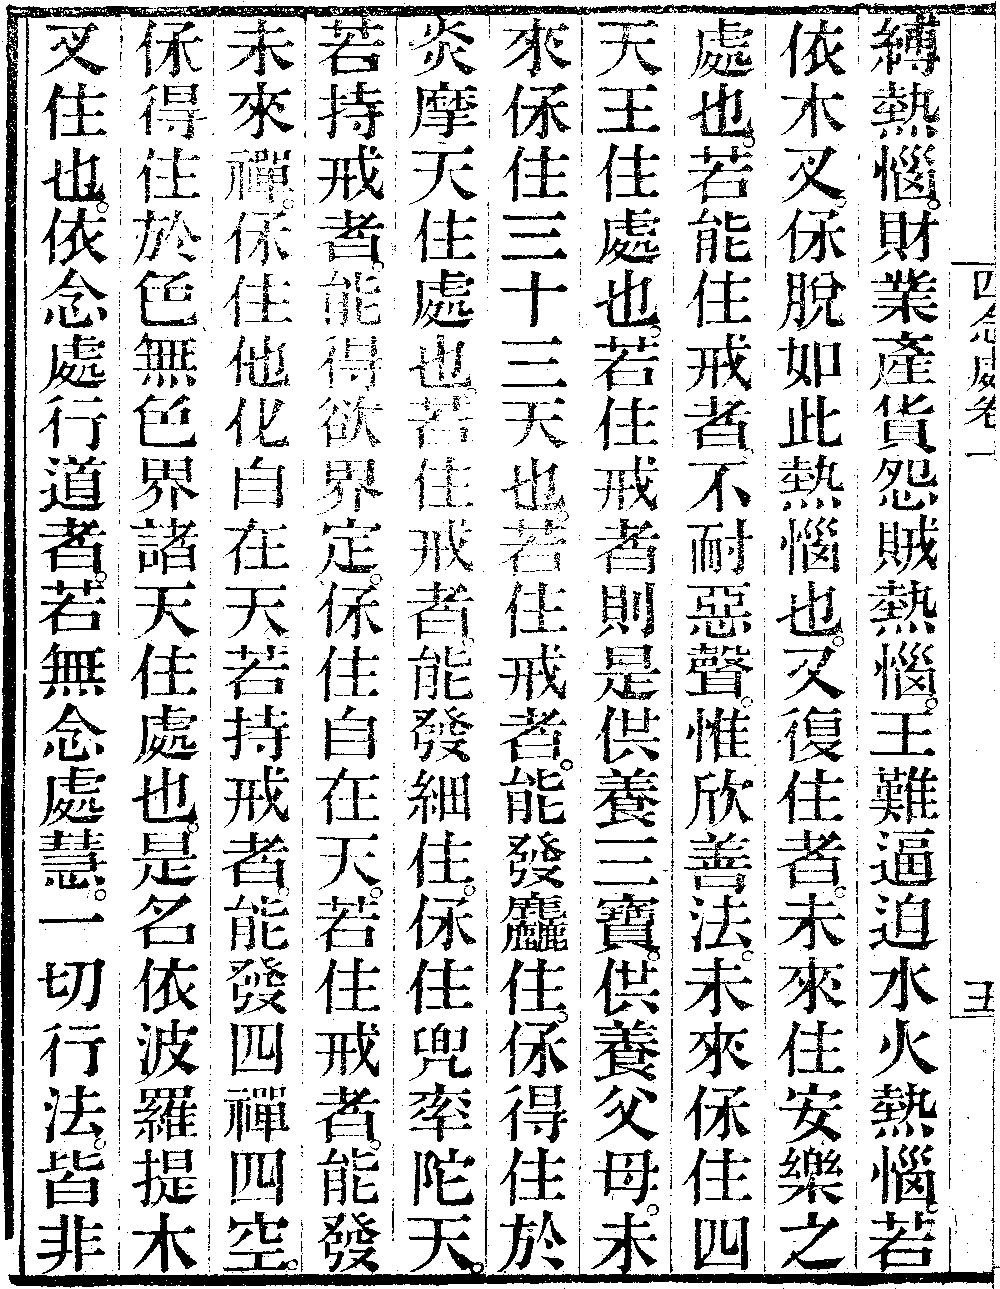 四念處卷一
五
縛熱惱。財業產貨怨賊熱惱。王難逼迫水火熱惱。若
依木叉保脫如此熱惱也。又復住者。未來住安樂之
處也。若能住戒者。不耐惡聲。惟欣善法。未來保住四
天王住處也。若住戒者則是供養三寶。供養父母。未
來保住三十三天也。若住戒者。能發麤住。保得住於
炎摩天住處也。若住戒者。能發細住。保住兜率陀天。
若持戒者。能得欲界定。保住自在天。若住戒者。能發
未來禪。保住他化自在天若持戒者。能發四禪四空。
保得住於色無色界諸天住處也。是名依波羅提木
叉住也。依念處行道者。若無念處慧。一切行法。皆非